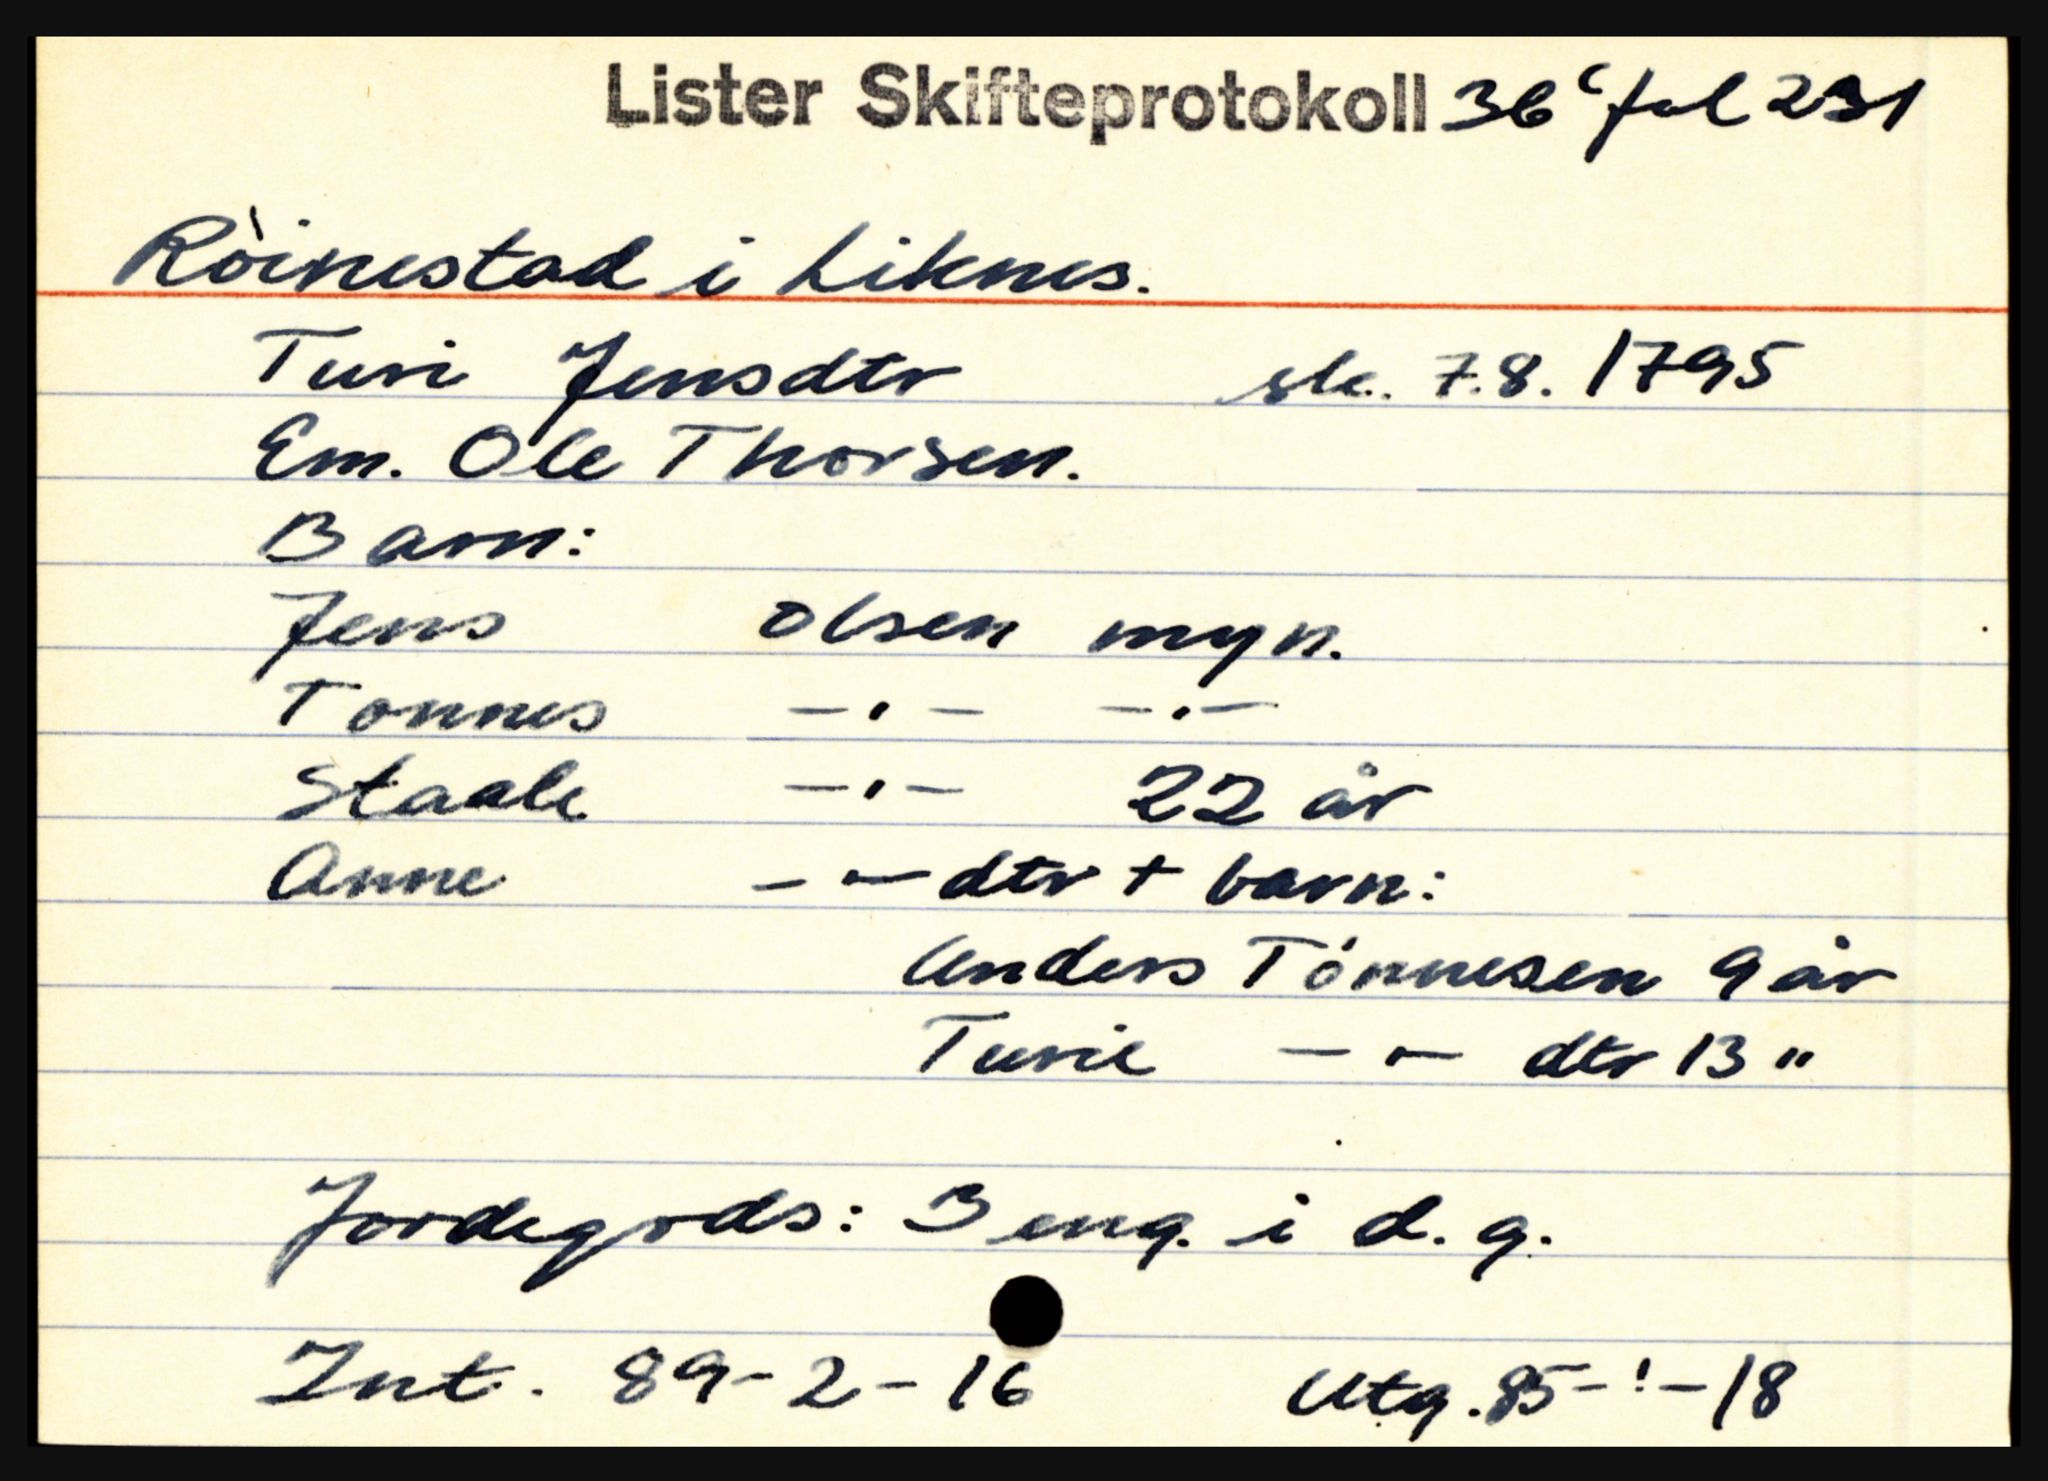 Lister Skifteprotokoll 36c fol 231
Röinestad i Liknes.
Turi Jensdtr sk. 7.8. 1795
Em. Ole Thorsen.
Barn:
Jens Olsen myn.
Tonnes -"- -"-
Staale -"- 22 år
Anne -"- dtr + barn:
Anders Tónnesen 9 år
Turie -"- dtr 13 "
Jordegods: 3 eng. i d. g.
Int. 89-2-16 Utg. 85-1-18